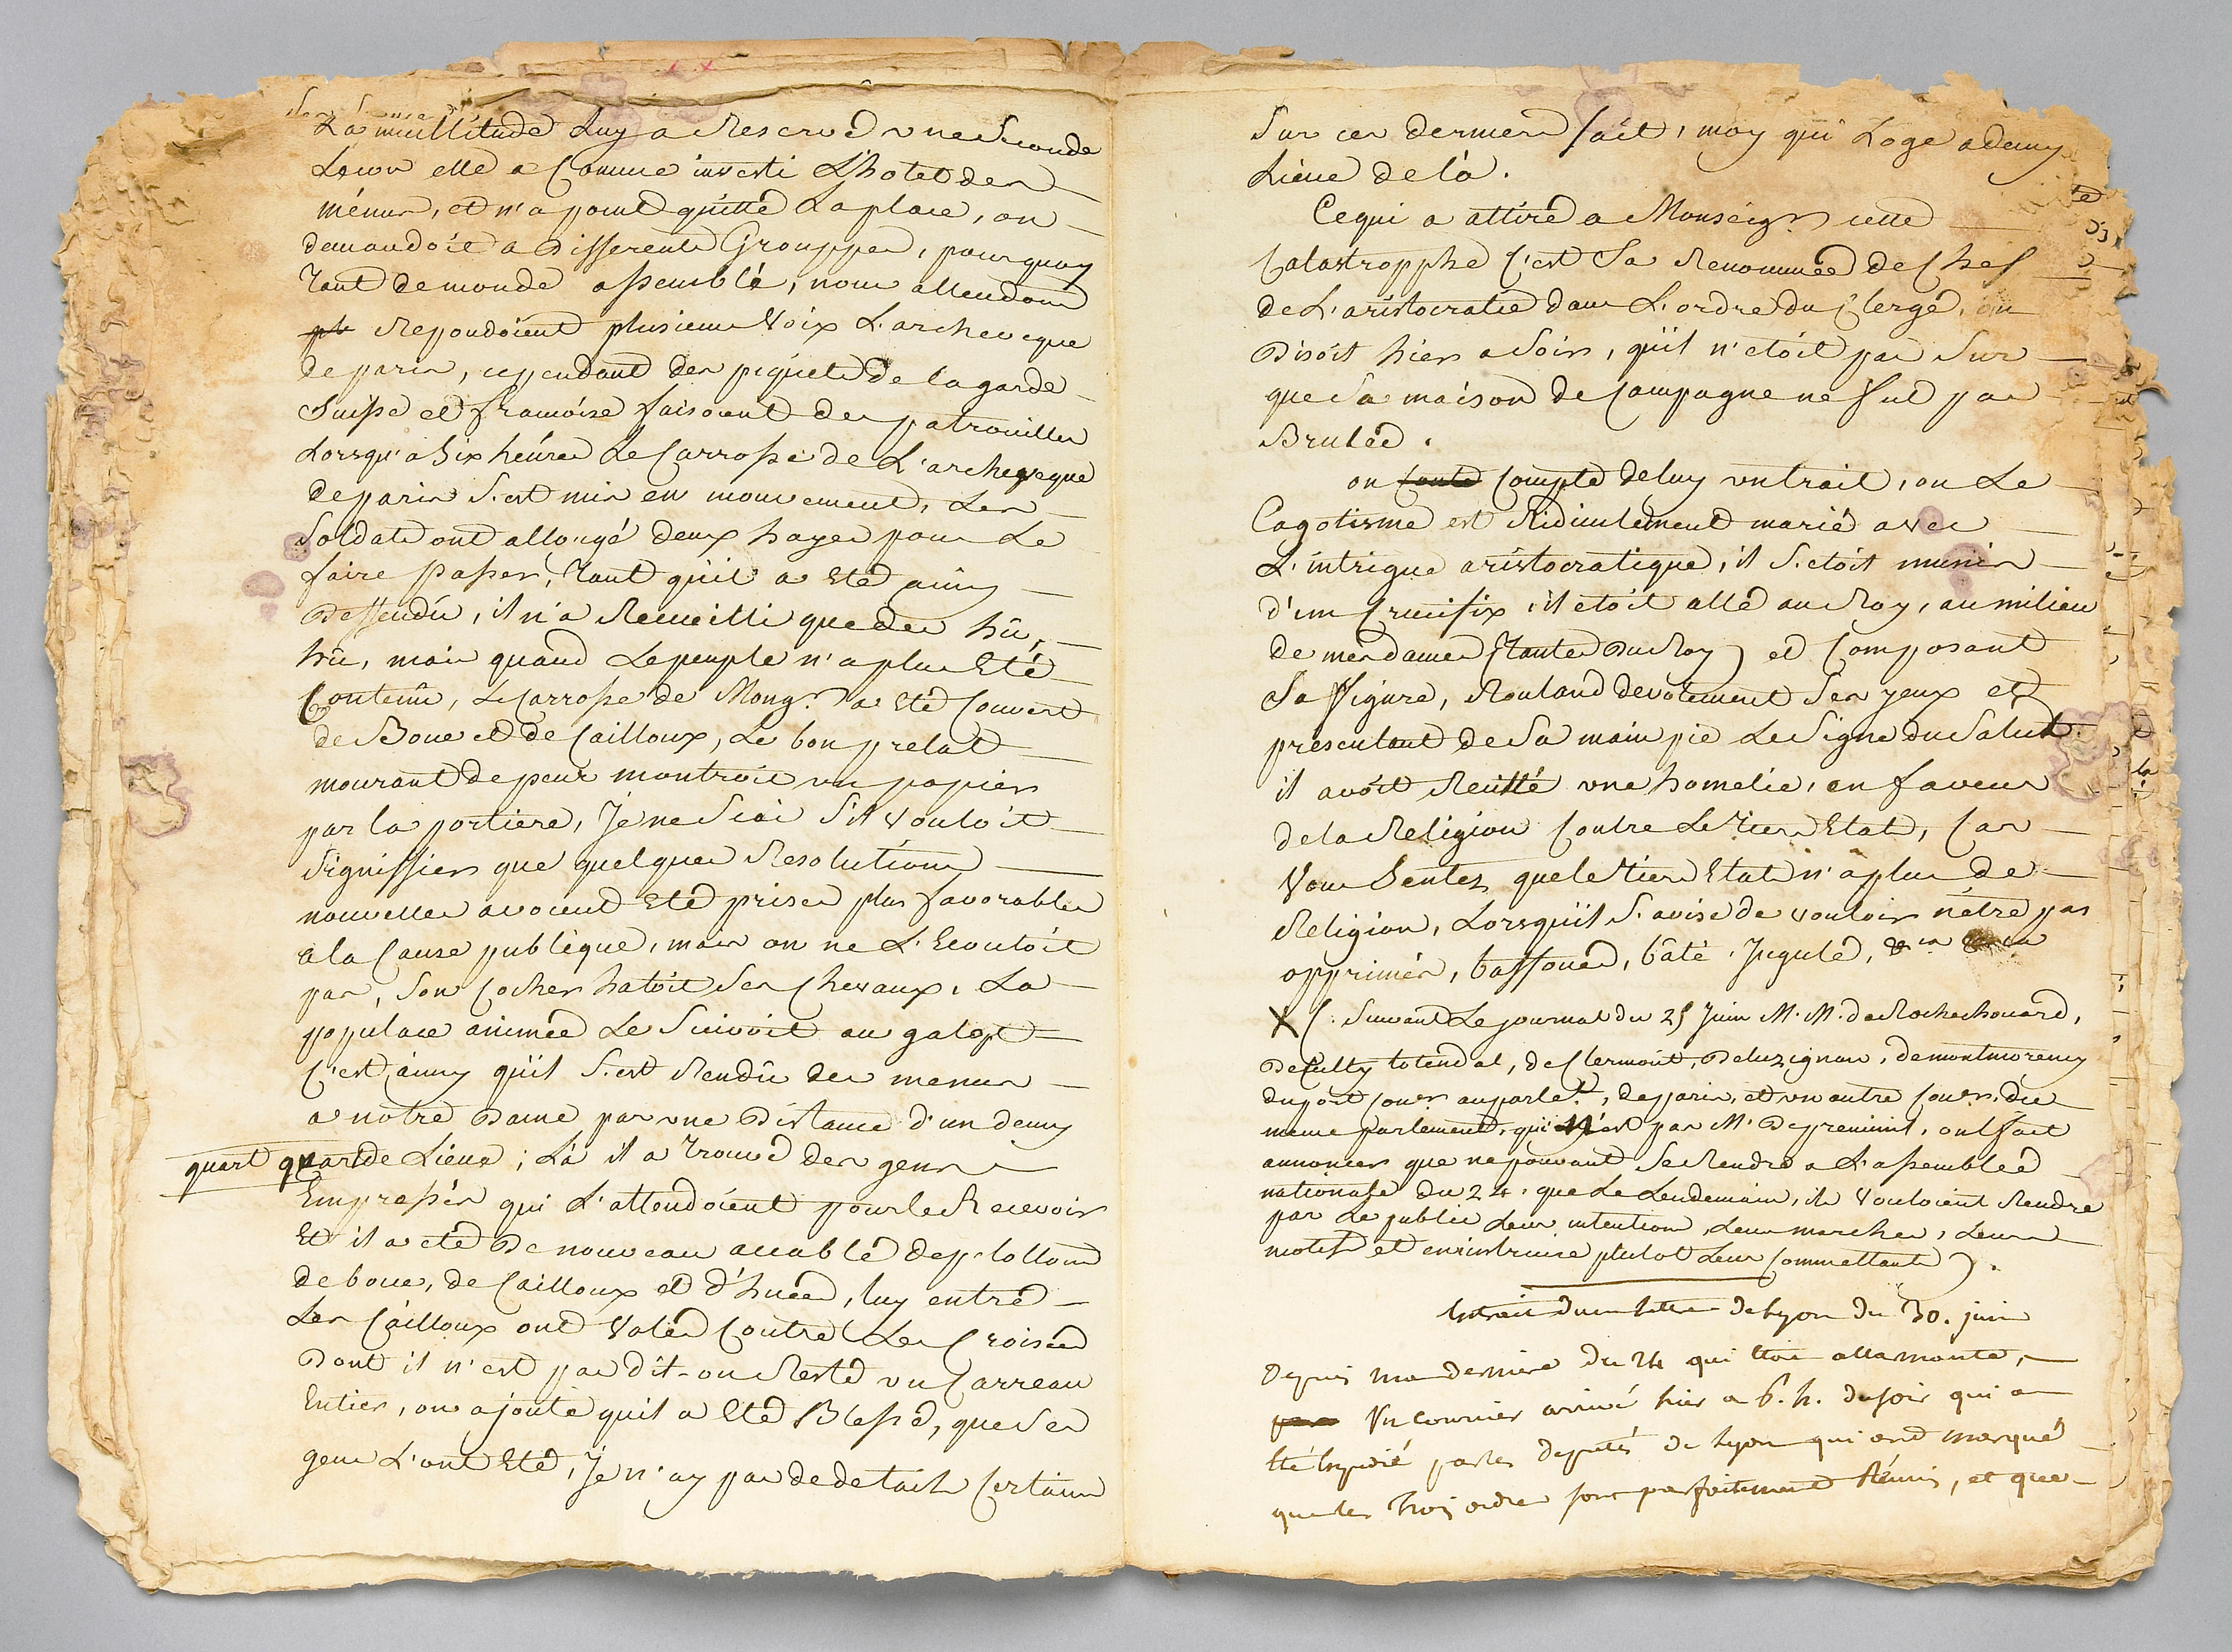 La multitude Luy a Reservé une Seconde
Lecon elle a Comme investi L'hotel des
ménus, et n'a point quitté La place, on
demandoit a Differents Grouppes, pourquoy
Tant de monde assemblé, nous attendons
Repondoient plusieurs Voix L'archeveque
de paris, cependant des piquets de la garde
Suisse et francoise faisoient des patrouilles
Lorsqu'a Six heures Le Carrosse de L'archeveque
de paris S'est mis en mouvement, Les
Soldats ont allongé deux hayes pour Le
faire passer, Tant qu'il a Eté ainsy
Deffendu, il n'a Recueilli que des hû,
hû, mais quand Le peuple n'a plus Eté
Contenû, Le Carrosse de Mong.r a Eté Couvert
de Boue et de Cailloux, Le bon prelat
mourant de peur montroit un papier
par la portiere, Je ne Scai S'il Vouloit
Signiffier que quelques Resolutions
nouvelles avoient Eté prises plus favorables
a la Cause publique, mais on ne L'Ecoutoit
pas, Son Cocher hatoit Ses Chevaux, La
populace animée Le Suivoit au galopt
C'est ainsy qu'il S'est Rendû des menus
a notre Dame par une Distance d'un demy
quart quart de Lieue ; Là il a Trouvé des gens
Empressés qui L'attendoient pour le Recevoir
Et il a eté De nouveau accablé de plottons
de boue, de Cailloux et d'huées, luy entré
Les Cailloux ont Volés Contre Les Croisées
Dont il n'est pas dit-on Resté un Carreau
Entier, on ajoute quil a Eté Blessé, que Ses
gens L'ont Eté, Je n'ay pas de details Certains
Sur ces derniers fait, moy qui Loge a demy
Lieue de là.
Ce qui a attiré a Monseigr cette
Catastropphe C'est Sa Renommée de Chef
de L'aristocratie dans L'ordre du Clergé, on
Disoit hier a Soir, qu'il n'etoit pas Sur
que Sa maison de Campagne ne fut pas
Brulée.
on Conte Compte de luy un trait, ou Le
Cagotisme est Ridiculement marié avec
L'intrigue aristocratique, il S'etoit munis
d'un Crucifix, il etoit allé au Roy, au milieu
de mesdames (Tantes Du Roy) et Composant
Sa ffigure, Roulant devotement Ses yeux et
présentant de Sa main pie Le Signe du Salut.
il avoit Recitté une homelie, en faveur
de la Religion Contre Le Tiers Etat, Car
Vous Sentez que le Tiers Etat n'a plus de
Religion, Lorsqu'il S'avise de vouloir nêtre pas
opprimés, baffoués, bâté, Jugulé,
X (Suivant Le journal du 25 Juin M.M. de Rochechouard,
De Lully tolendal, de Clermont, De luzignan, de montmorency
duport Coner au parle.t, de paris, et un autre Coner, du
meme parlement, qui n'est pas M.r Depremini, ont fait
annoncer que ne pouvant Se Rendre a L'assemblée
nationale du 24. que Le Lendemain, ils Vouloient Rendre
par Le public Leurs intentions, Leurs marches, Leurs
motifs et en instruire plutot Leurs Commettants).
Extrait d'une lettre de Lyon du 30. juin
Depuis ma derniere du 24 qui etoit allarmante,
Un Courrier arrivé hier a 6. h. du soir qui a
eté Envoié par les deputés de Lyon qui ont marqué
que les trois ordres sont parfaitement Réunis, et que